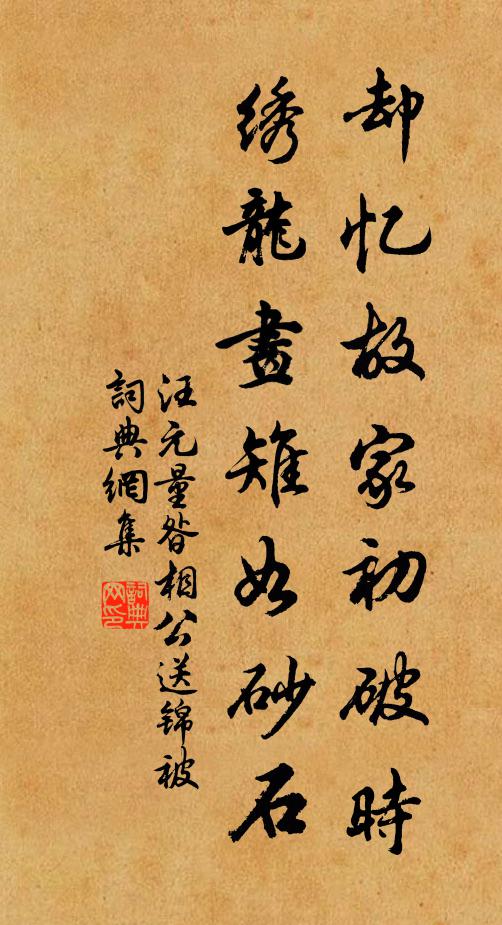 却忆故家初破時
绣龍畫雉如砂石
汪元量昝相公送錦被
詞典網集
詞典网印